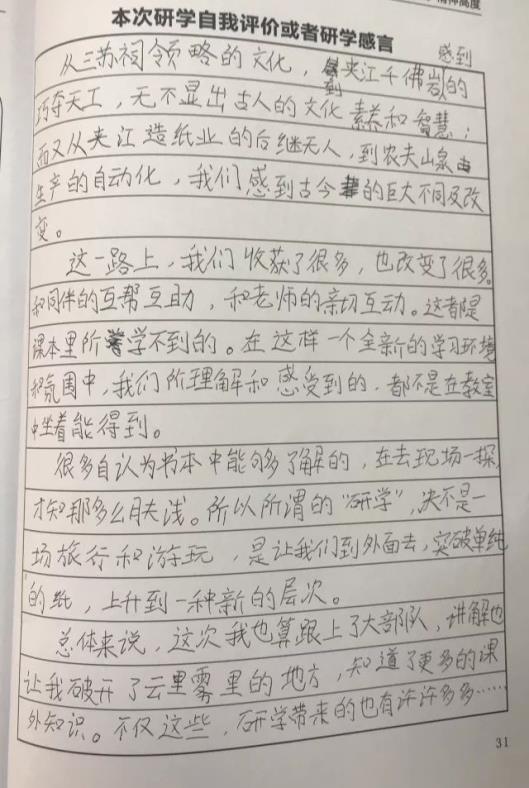 精神高度
本次研学自我评价或者研学感言
感到
从三苏祠领略的文化，到夹江千佛岩的
巧夺天工，无不显出古人的文化素养和智慧；
而又从夹江造纸业的后继无人，到农夫山泉由
生产的自动化，我们感到古今的巨大不同及改
变。
这一路上，我们收获了很多，也改变了很多。
和同伴的互帮互助，和老师的亲切互动。这都是
课本里所学不到的。在这样一个全新的学习环境
和氛围中，我们所理解和感受到的，都不是在教室
中坐着能得到。
很多自认为书本中能够了解的，在去现场一探，
才知那多么肤浅。所以所谓的“研学”，决不是一
场旅行和游玩，是让我们到外面去，突破单纯
的纸，上升到一种新的层次。
总体来说，这次我也算跟上了大部队，讲解也
让我破开了云里雾里的地方，知道了更多的课
外知识。不仅这些，研学带来的也有许许多多……
31